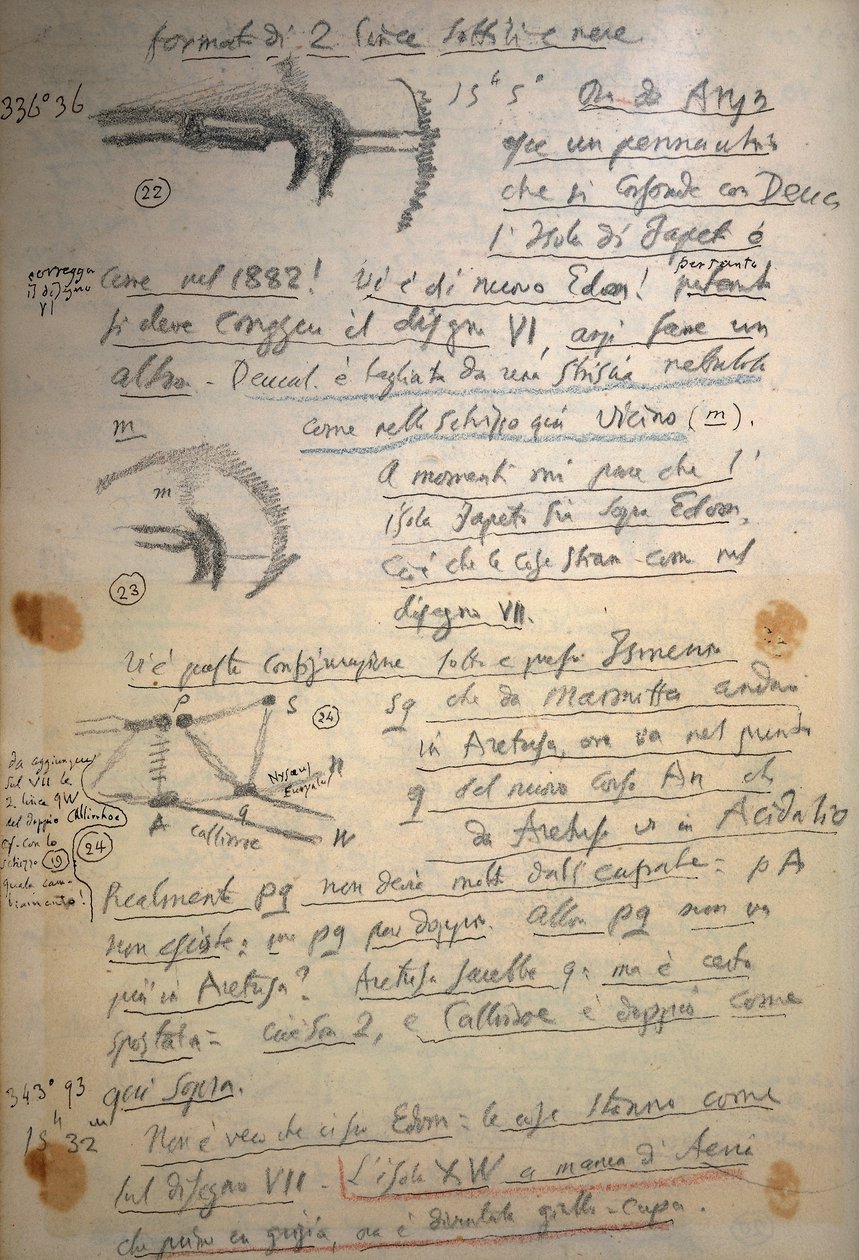 format di 2 linee sottili e nere
336° 36
15h 5°
che si confonde con Deuc
l'Isola di Japet è
(22)
correggere
il disegno
VI
come nel 1882! Vi è di nuovo Edom! pertanto
si deve il disegno VI, anzi farne un
altro - Deucal. è tagliata da una striscia nebulosa
come nello schizzo qui vicino (m).
m
m
(23)
A momenti mi pare che l'
isola Japeto sia sopra Edom.
Cioè che le cose stian come nel
disegno VII.
Vi è questa configurazione sotto e presso Ismenio
P
S
(24)
sq che da andava
in Aretusa, ora va nel punto
q del nuovo corso An che
da Aretusa va in Acidalio
A
q
n
W
Callirroe
da aggiungere
sul VII la
2. linea qW
del doppio Callirrhoe
cf. con lo
schizzo (19)
quale cam-
biamento!
(24)
Realmente pq non devia molto dall'eufrate = pA
non esiste: pq par doppio. Allora pq non va
più in Aretusa? Aretusa sarebbe q: ma è certo
spostata = 2, e Callirroe è doppio come
qui sopra.
343° 93
15h 32m
Non è vero che ci sia Edom = le cose stanno come
sul disegno VII - L'isola XW a manca di Aeria
che prima era grigia, ora è divenuta giallo-cupa.